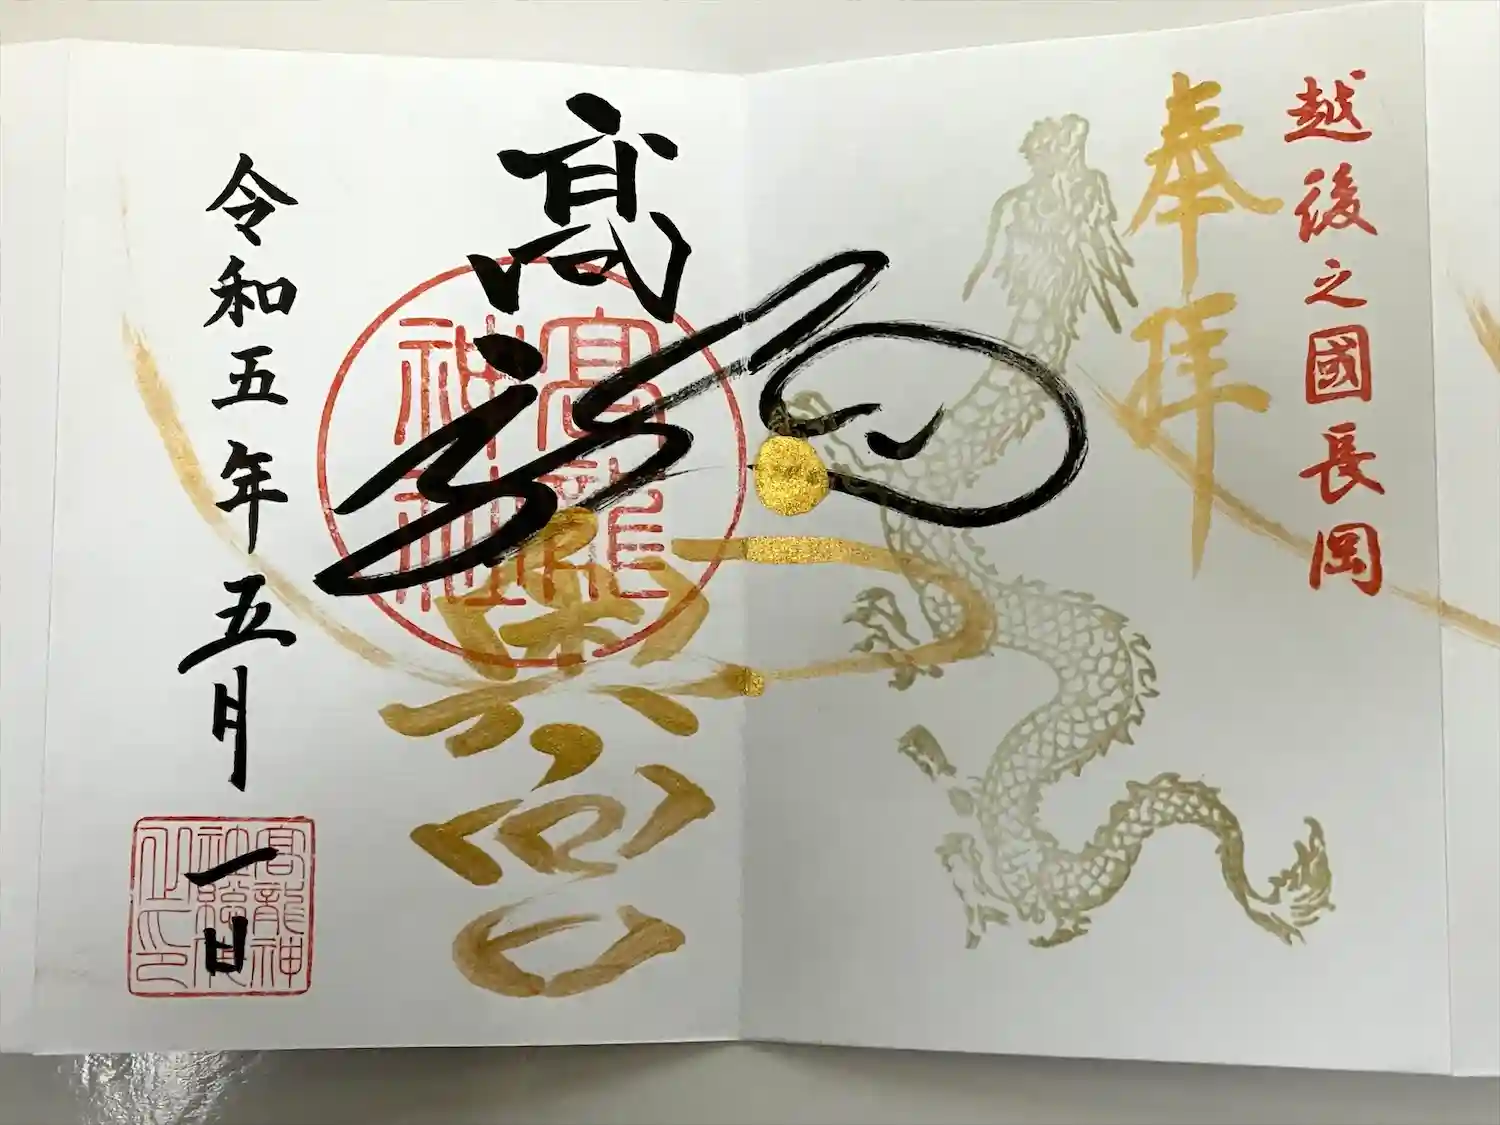 越後之國長岡
奉拝
高龍
奥宮
高龍神社
令和五年五月一日